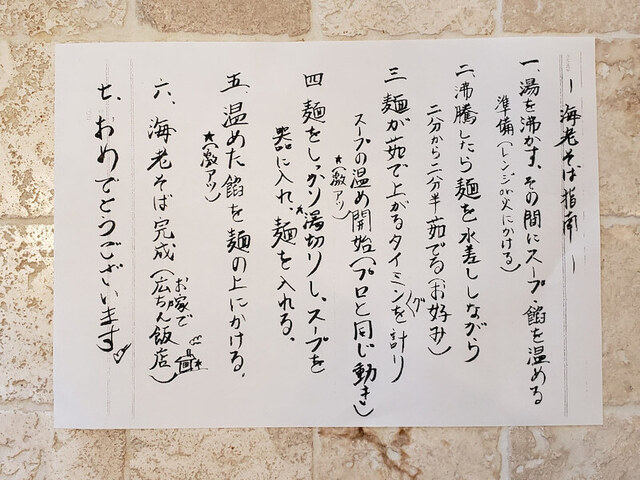 ー海老そば指南ー
一、湯を沸かす。その間にスープ・餡を温める
準備(レンジor火にかける)
二、沸騰したら麺を水差ししながら
二分から二分半茹でる(お好み)
三、麺が茹で上がるタイミングを計り
スープの温め開始(プロと同じ動き)
★(激アツ)
四、麺をしっかり湯切りし、スープを
器に入れ、麺を入れる。
★(激アツ)
五、温めた餡を麺の上にかける。
★(激アツ)
六、海老そば完成(お家で広ちん飯店)
七、おめでとうございます